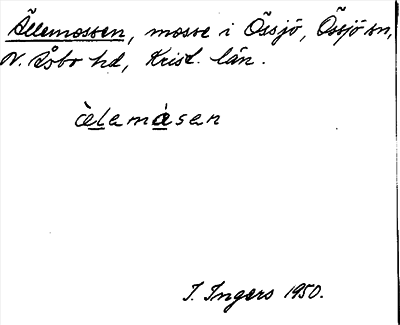 Ällemossen, mosse i Össjö, Össjö sn,
N. Åsbo hd, Krist. län.
èlemàsen
I. Ingers 1950.